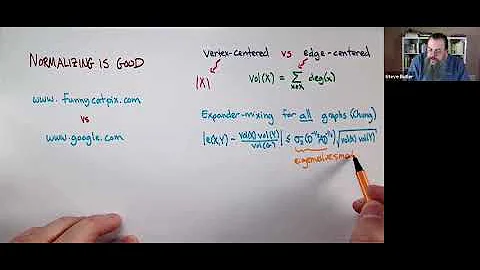 NORMALIZING IS GOOD
www.funnycatpix.com
vs
www.google.com
vertex-centered vs edge-centered
|X| vol(X) = ∑ deg(x)
x∈X
Expander-mixing for all graphs (Chung)
|e(X,Y) - vol(X) vol(Y) / vol(G)| ≤ σ₂(D^-1/2 A D^-1/2) √vol(X) vol(Y)
Steve Butler